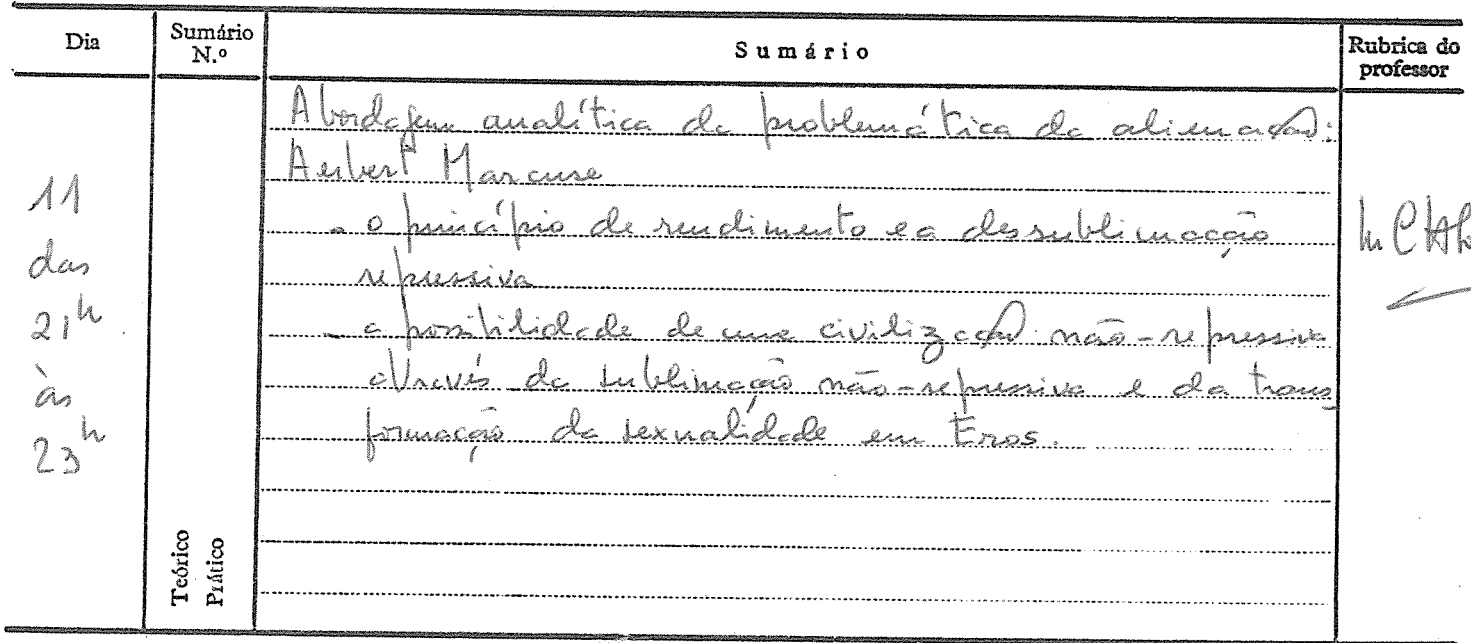 Dia
Sumário N.º
Sumário
Rubrica do professor
11
das
21h
às
23h
Abordagem analítica da problemática da alienação:
Herbert Marcuse
- o princípio de rendimento e a dessublimação
repressiva
- a possibilidade de uma civilização não-repressiva
através da sublimação não-repressiva e da trans
formação da sexualidade em Eros.
Teórico
Prático